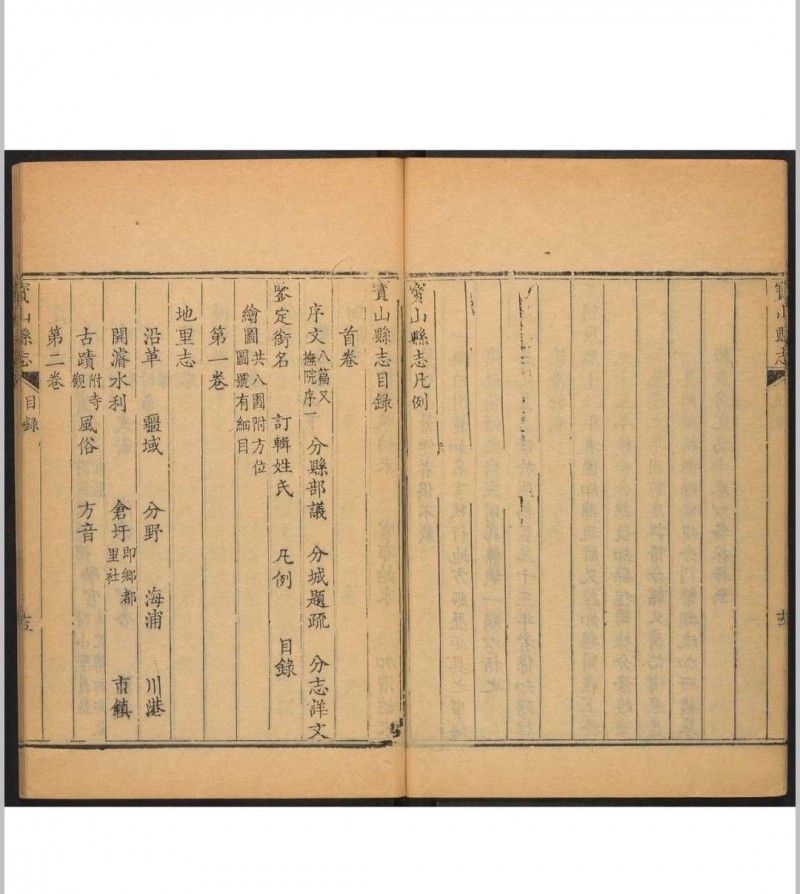 寶山縣志
寶山縣志凡例
寶山縣志目錄
首卷
序文 八篇又撫院序一 分縣部議 分城題疏 分志詳文
鉴定銜名 訂輯姓氏 凡例 目錄
繪圖 共八圖附方位圖號有細目
第一卷
地里志
沿革 疆域 分野 海浦 川港
開濬水利 倉圩 即鄉都里社 市鎮
古蹟 附寺觀 風俗 方音
第二卷
寶山縣志 目錄